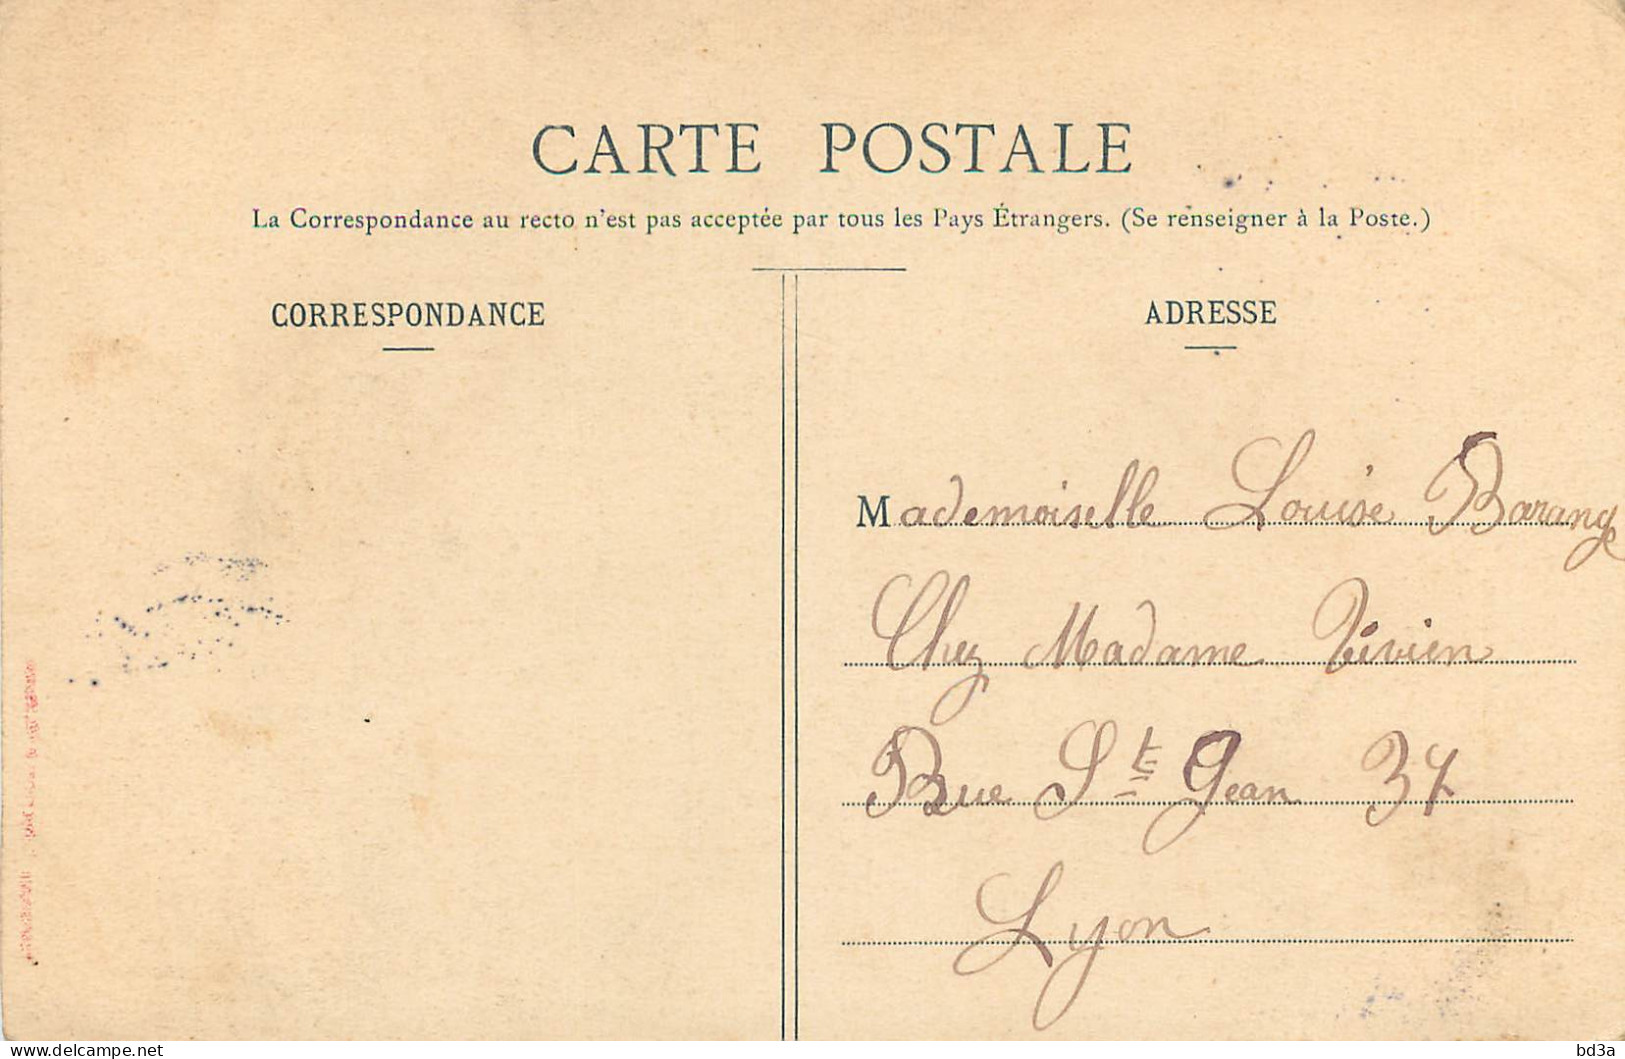 CARTE POSTALE
La Correspondance au recto n'est pas acceptée par tous les Pays Étrangers. (Se renseigner à la Poste.)
CORRESPONDANCE
ADRESSE
Mademoiselle Louise Barange
Chez Madame Vivien
Rue St Jean 37
Lyon
www.delcampe.net
bd3a